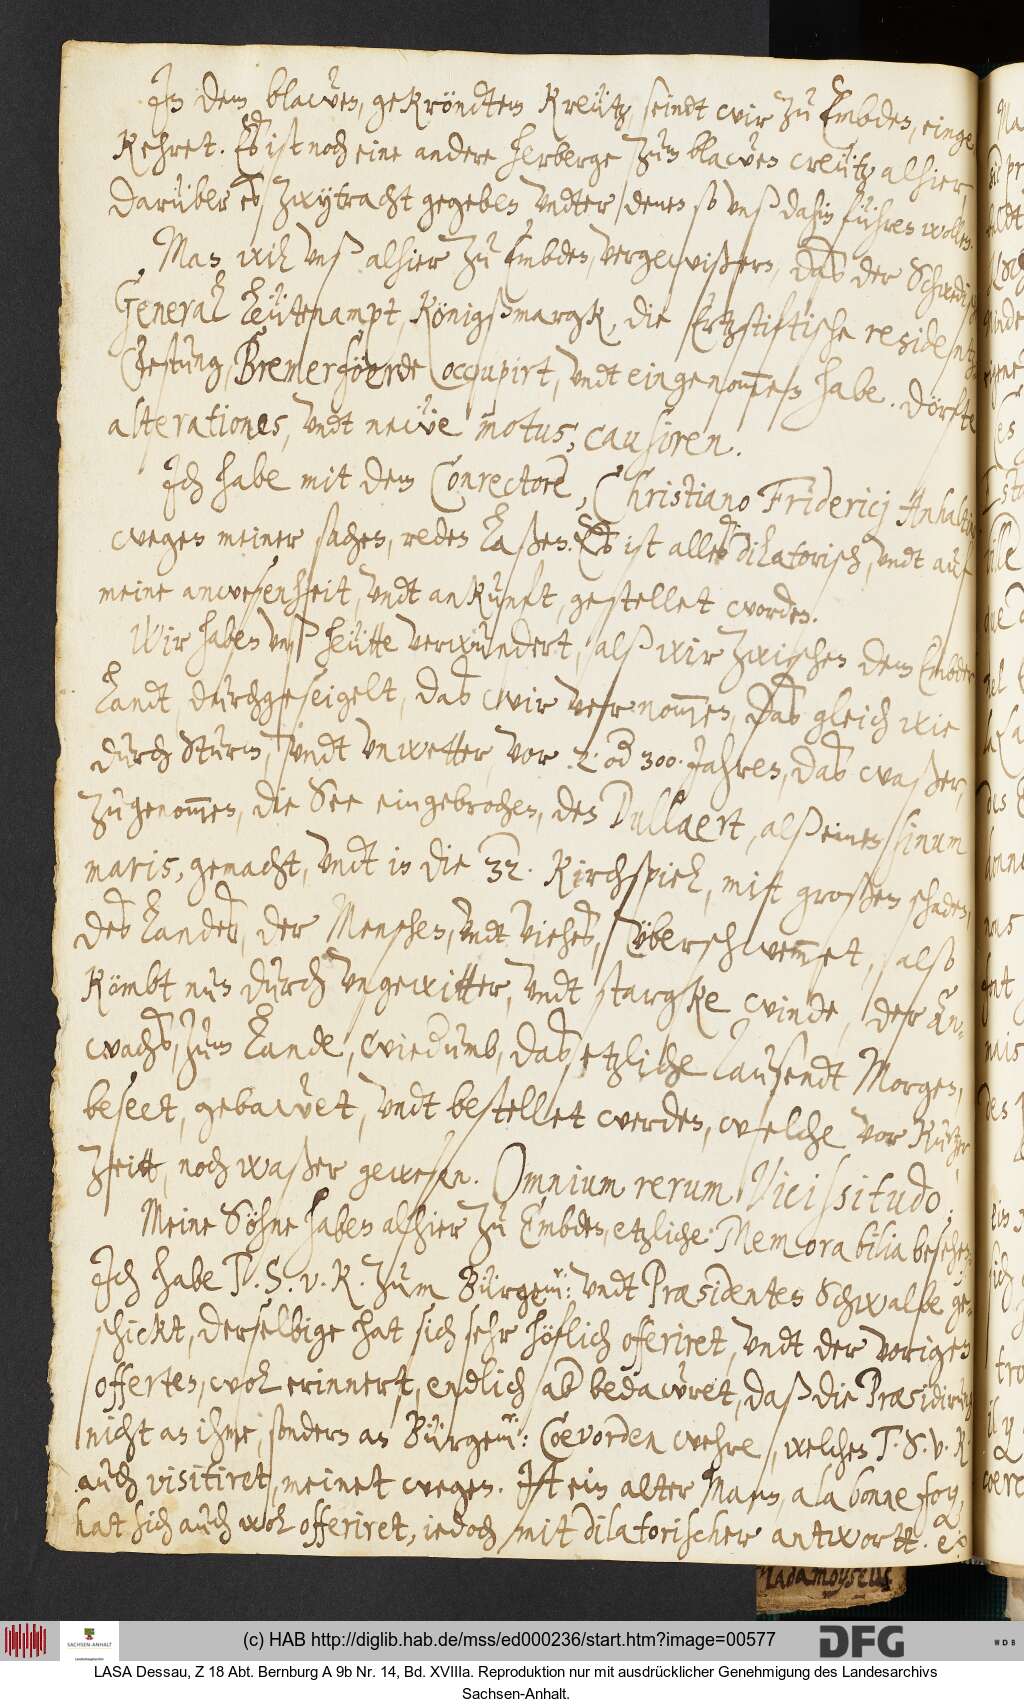 In dem blawen, gekröndten Kreütz, seindt wir zu Embden, einge-
kehret. Es ist noch eine andere herberge zum blawen creütz alhier,
darüber es zwytracht gegeben, undter denen so unß dahin führen wollen.
Man will unß alhier zu Embden, vergewißern, das der Schwedische
General Leütenampt, Königßmargk, die Ertzstiftische residentz
Vestung, Bremerföerde occupirt, undt eingenom̅en habe. Dörfte
alterationes, undt newe motus, causiren.
Ich habe mit dem Conrectore, Christiano Friderici Anhaltin
wegen meiner sachen, reden laßen. Es ist alles dilatorisch, undt auf
meine anwesenheit, undt ankunft, gestellet worden.
Wir haben unß heütte verwundert, alß wir zwischen dem Embder
Landt, durchgeseigelt, das wir vernom̅en, Das gleich wie
durch Sturm, undt unwetter, vor .2. od 300. Jahren, das waßer,
zugenom̅en, die See eingebrochen, den Dullaert, alß einen sinum
maris, gemacht, undt in die 32. Kirchspiel, mitt großen schaden,
des Landes, der Menschen, undt viehes, überschwem̅et, also
kömbt nun durch ungewitter, undt stargke winde, der An-
wachs, zum Lande, wiedumb, das, etzliche Tausendt Morgen,
beseet, gebawet, undt bestellet werden, welche vor kurtzer
Zeitt, noch waßer gewesen. Omnium rerum Vicissitudo.
Meine Söhne haben alhier zu Embden, etzliche Memorabilia besehen.
Ich habe T. S. v. R. zum Bürgem: undt Præsidenten Schwalbe ge-
schickt, derselbige hat sich sehr höflich offeriret, undt der vorigen
offerten, wol erinnert, endlich ab bedawret, daß die Præsidirung
nicht an ihme, sondern an Bürgem: Coevorden wehre, welchen T. S. v. R.
auch visitiret, meinet wegen. Ist ein alter Mann, a la bonne foy,
hat sich auch wol offeriret, iedoch mit dilatorischer antwortt. et
Madamoyselle
(c) HAB http://diglib.hab.de/mss/ed000236/start.htm?image=00577
SACHSEN-ANHALT
DFG
WDB
LASA Dessau, Z 18 Abt. Bernburg A 9b Nr. 14, Bd. XVIIIa. Reproduktion nur mit ausdrücklicher Genehmigung des Landesarchivs
Sachsen-Anhalt.